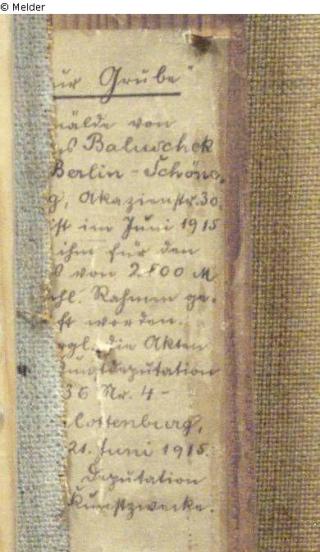 © Melder
ur Grube"
mälde von
s Baluschek
Berlin-Schöne-
g, Akazienstr. 30,
ist im Juni 1915
ihm für den
s von 2800 M
chl. Rahmen ge-
ft worden.
ergl. die Akten
unstdeputation
36 Nr. 4-
lottenburg,
21. Juni 1915.
Deputation
Kunstzwecke.